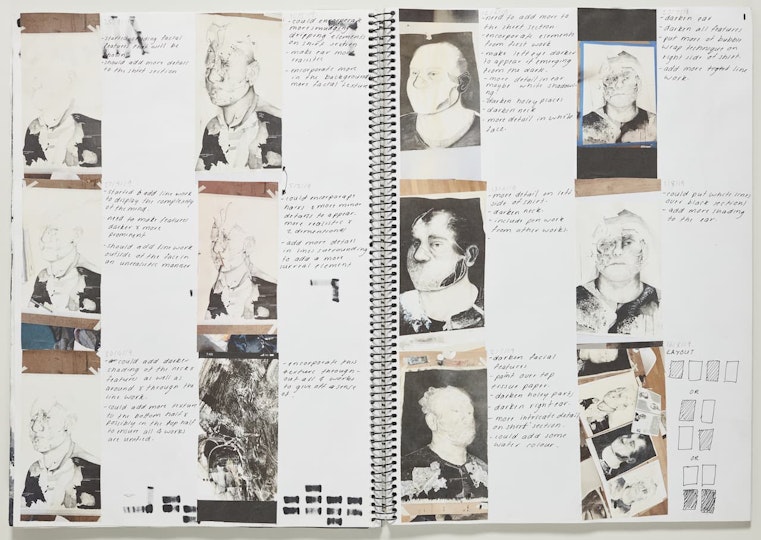 facial
features neck will be
- should add more detail
to the shirt section
- could encorporate
more
dripping elements
on shirt section
- make ear more
realistic
- encorporate more
in the background
more facial texture
- started to add line work
to display the complexity
of the mind.
- need to make features
darker & more
prominent
- should add line work
outside of the face in
an unrealistic manner
- could encorporate
hairs & more minor
details to appear
more realistic &
3 dimensional
- add more detail
in lines surrounding
to add a more
surreal element
- could add darker
shading of the neck &
features as well as
around & through the
line work.
- could add more texture
to the bottom half &
possibly in the top half
to ensure all 4 works
are unified.
- encorporate this
texture through-
out all 4 works
to give off a sense
of
- need to add more to
the shirt section
- encorporate elements
from first work
- make shirt darker
to appear if emerging
from the dark.
- more detail in ear
maybe white shadow
ing
- darken holey places
- darken neck
- more detail in white
face.
- darken ear
- darken all features
- put more of bubble
wrap technique on
right side of shirt.
- add more tight line
work.
- more detail on left
side of shirt.
- darken neck
- mixed pen work
from other works
- could put white lines
over black sections
- add more shading
to the ear.
- darken facial
features
- paint over top
tissue paper
- darken holey parts
- darken right ear.
- more intricate detail
on shirt section.
- could add some
water colour.
LAYOUT
OR
OR